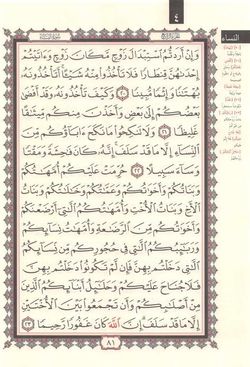 ٤
النساء
وَإِنْ أَرَدتُّمُ ٱسْتِبْدَالَ زَوْجٍ مَّكَانَ زَوْجٍ وَءَاتَيْتُمْ
إِحْدَىٰهُنَّ قِنطَارًا فَلَا تَأْخُذُوا۟ مِنْهُ شَيْـًٔا أَتَأْخُذُونَهُۥ
بُهْتَٰنًا وَإِثْمًا مُّبِينًا ٢٠ وَكَيْفَ تَأْخُذُونَهُۥ وَقَدْ أَفْضَىٰ
بَعْضُكُمْ إِلَىٰ بَعْضٍ وَأَخَذْنَ مِنكُم مِّيثَٰقًا
غَلِيظًا ٢١ وَلَا تَنكِحُوا۟ مَا نَكَحَ ءَابَآؤُكُم مِّنَ
ٱلنِّسَآءِ إِلَّا مَا قَدْ سَلَفَ إِنَّهُۥ كَانَ فَٰحِشَةً وَمَقْتًا
وَسَآءَ سَبِيلًا ٢٢ حُرِّمَتْ عَلَيْكُمْ أُمَّهَٰتُكُمْ
وَبَنَاتُكُمْ وَأَخَوَٰتُكُمْ وَعَمَّٰتُكُمْ وَخَٰلَٰتُكُمْ وَبَنَاتُ
ٱلْأَخِ وَبَنَاتُ ٱلْأُخْتِ وَأُمَّهَٰتُكُمُ ٱلَّٰتِىٓ أَرْضَعْنَكُمْ
وَأَخَوَٰتُكُم مِّنَ ٱلرَّضَٰعَةِ وَأُمَّهَٰتُ نِسَآئِكُمْ
وَرَبَٰٓئِبُكُمُ ٱلَّٰتِى فِى حُجُورِكُم مِّن نِّسَآئِكُمُ
ٱلَّٰتِى دَخَلْتُم بِهِنَّ فَإِن لَّمْ تَكُونُوا۟ دَخَلْتُم بِهِنَّ
فَلَا جُنَاحَ عَلَيْكُمْ وَحَلَٰٓئِلُ أَبْنَآئِكُمُ ٱلَّذِينَ
مِنْ أَصْلَٰبِكُمْ وَأَن تَجْمَعُوا۟ بَيْنَ ٱلْأُخْتَيْنِ
إِلَّا مَا قَدْ سَلَفَ إِنَّ ٱللَّهَ كَانَ غَفُورًا رَّحِيمًا ٢٣
٨١